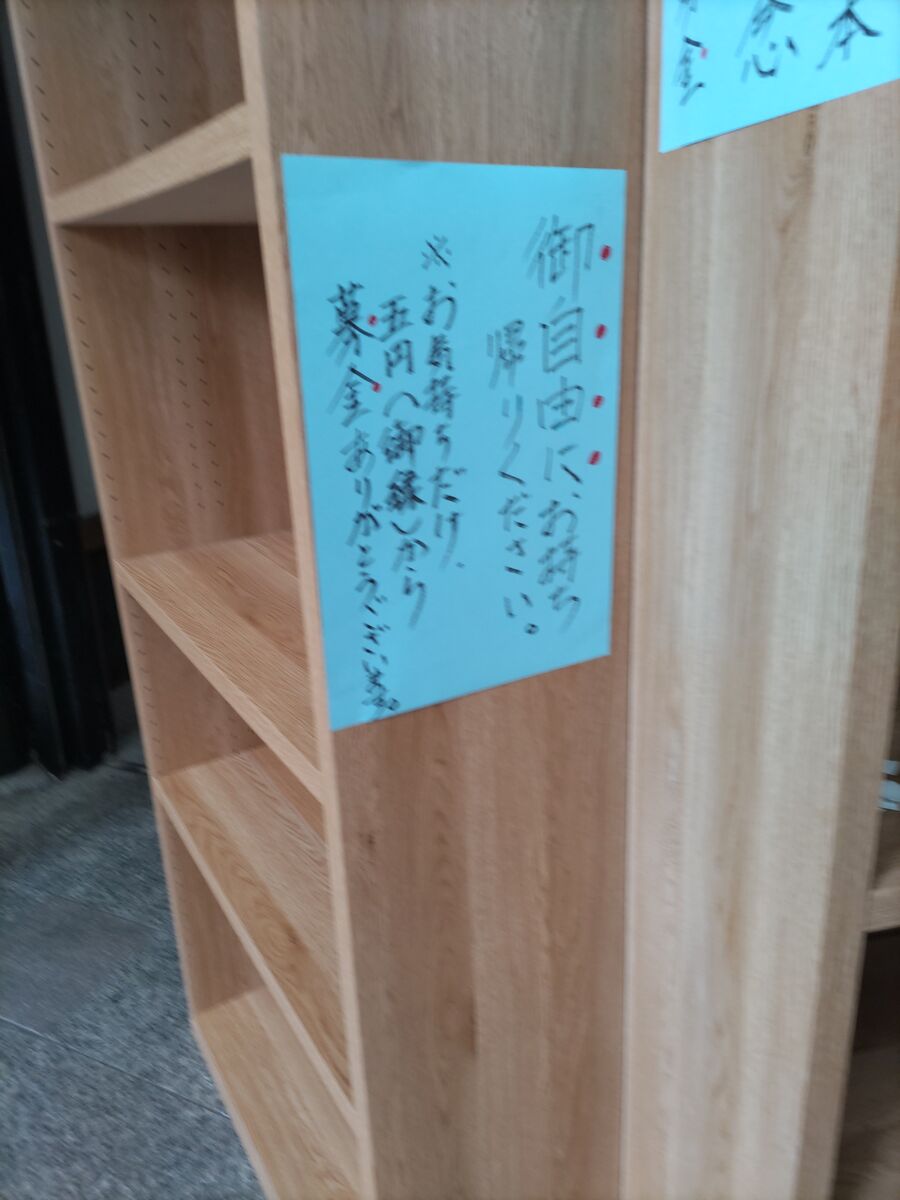 本
念
募金
御自由に、お持ち
帰りください。
※お気持ちだけ、
五円(御縁)から
募金ありがとうございます。